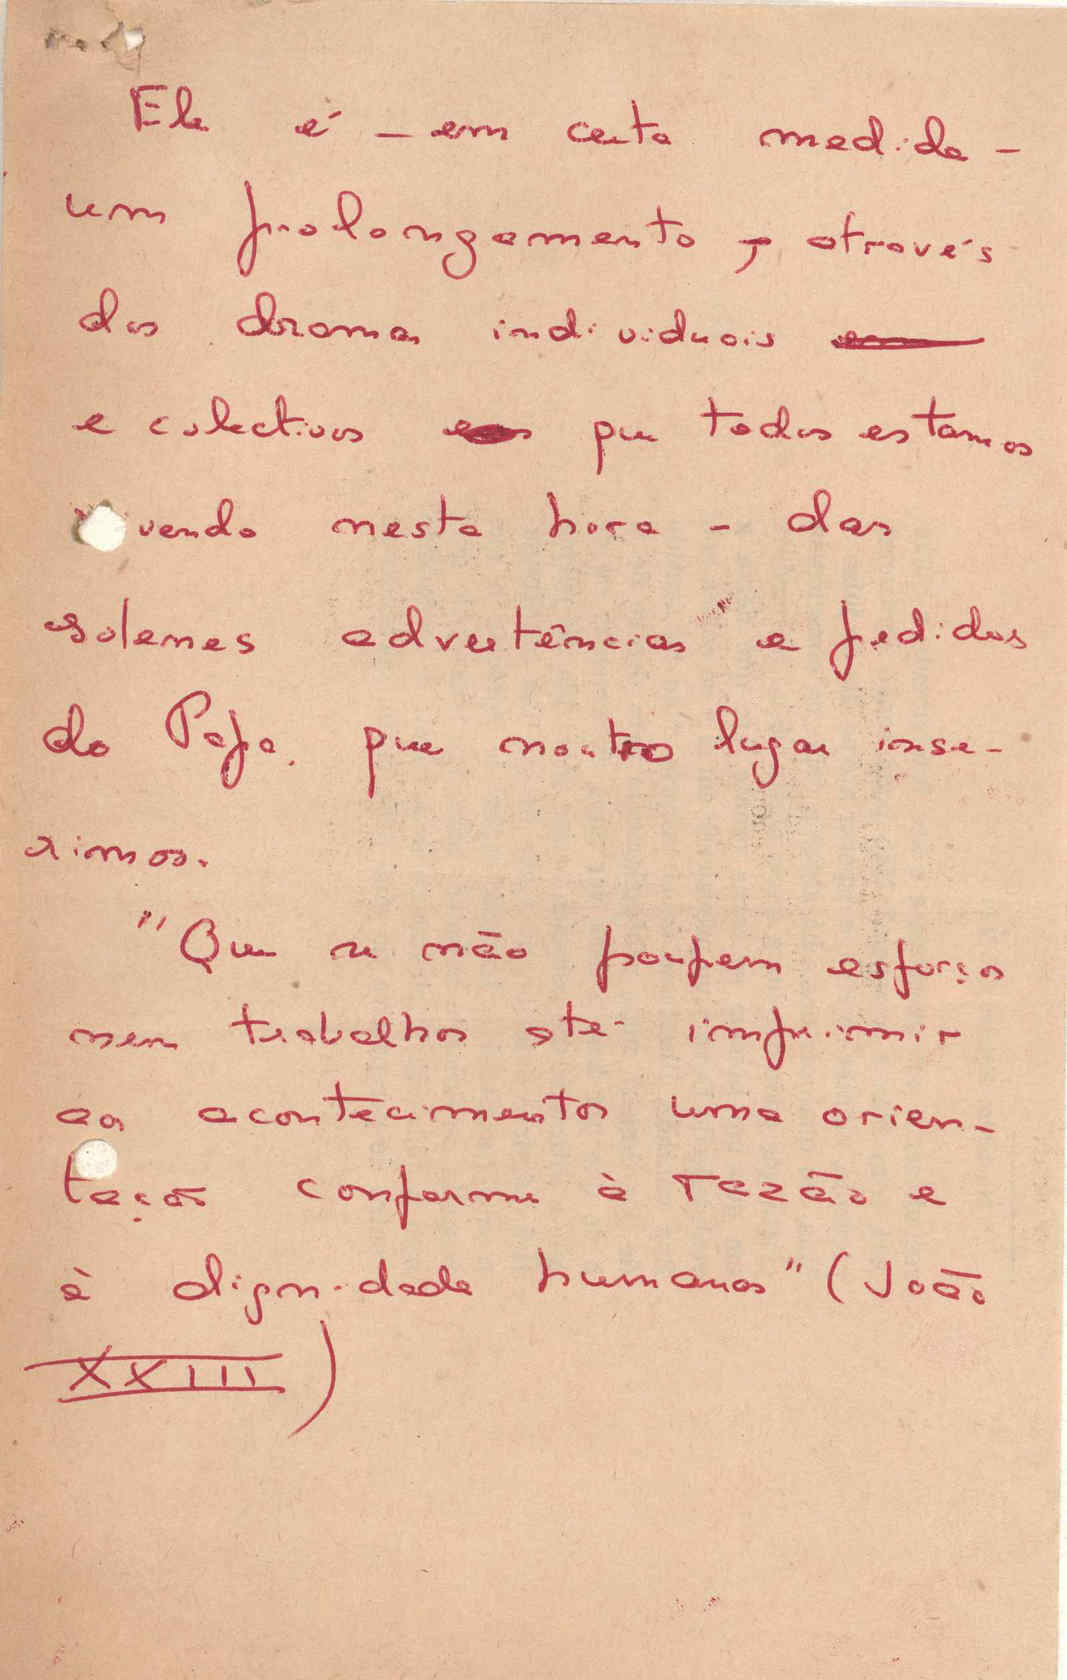 Ele é - em certa medida -
um prolongamento, através
dos dramas individuais
e colectivos que todos estamos
vendo nesta hora - das
solenes advertências e pedidos
do Papa. que noutro lugar inse-
rimos.
"Que se não poupem esforços
nem trabalhos até imprimir
aos acontecimentos uma orien-
tação conforme à razão e
à dignidade humanas" (João
XXIII)